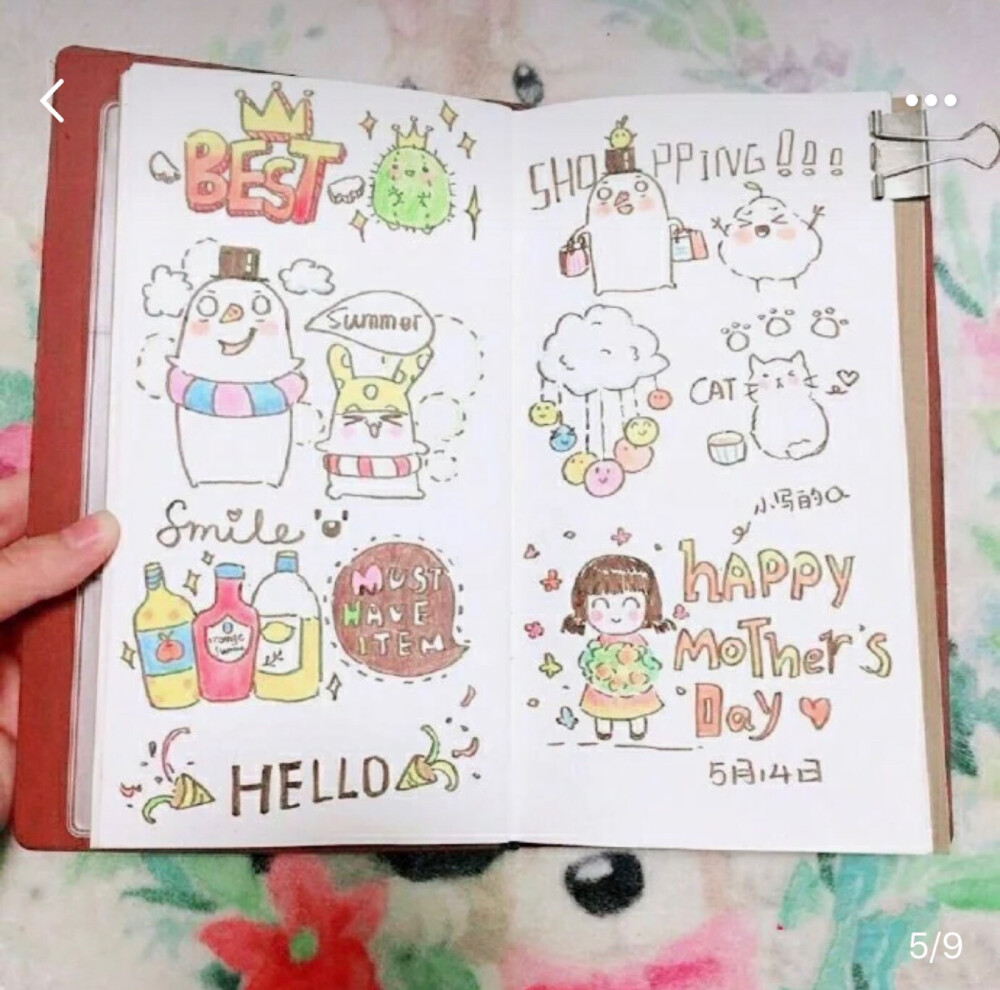 BEST
Summer
Smile
MUST
HAVE
ITEM
HELLO
SHOPPING!!!
CAT
小写的a
hAPPy
MoTher's
Day
5月14日
5/9